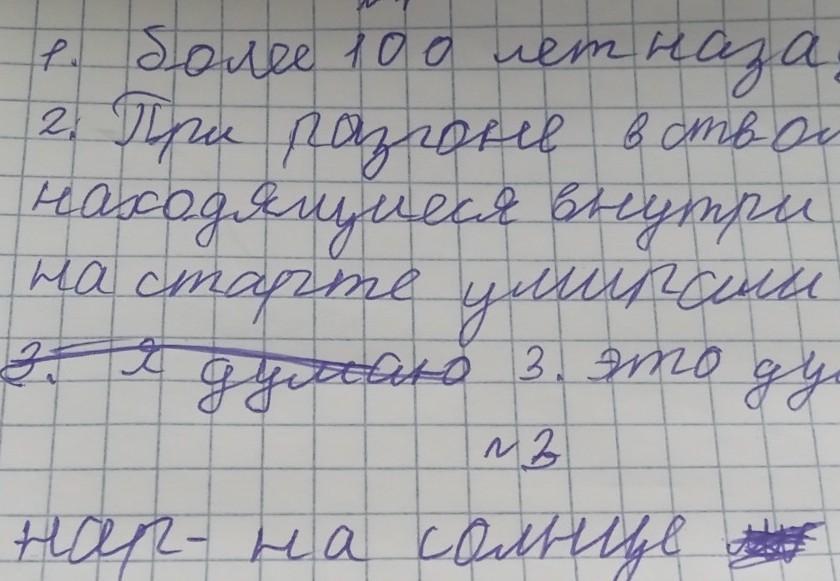 1. более 100 лет наза
2. При разгоне в ство
находящиеся внутри
на старте умирали
3. я думаю 3. это ду
№3
нар- на солнце